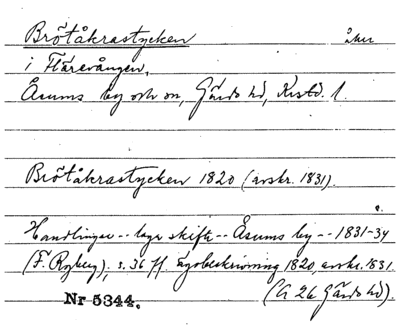 Brötåkrastycken åker
i Flärevången,
Åsums by och sn, Gärds hd, Krstd. l.
Brötåkrastycken 1820 (avskr. 1831).
Handlingar -- laga skifte -- Åsums by -- 1831-34
(F. Ryberg), s. 36 ff. Ägobeskrivning 1820, avskr. 1831.
Nr 5344. (G 26 Gärds hd).